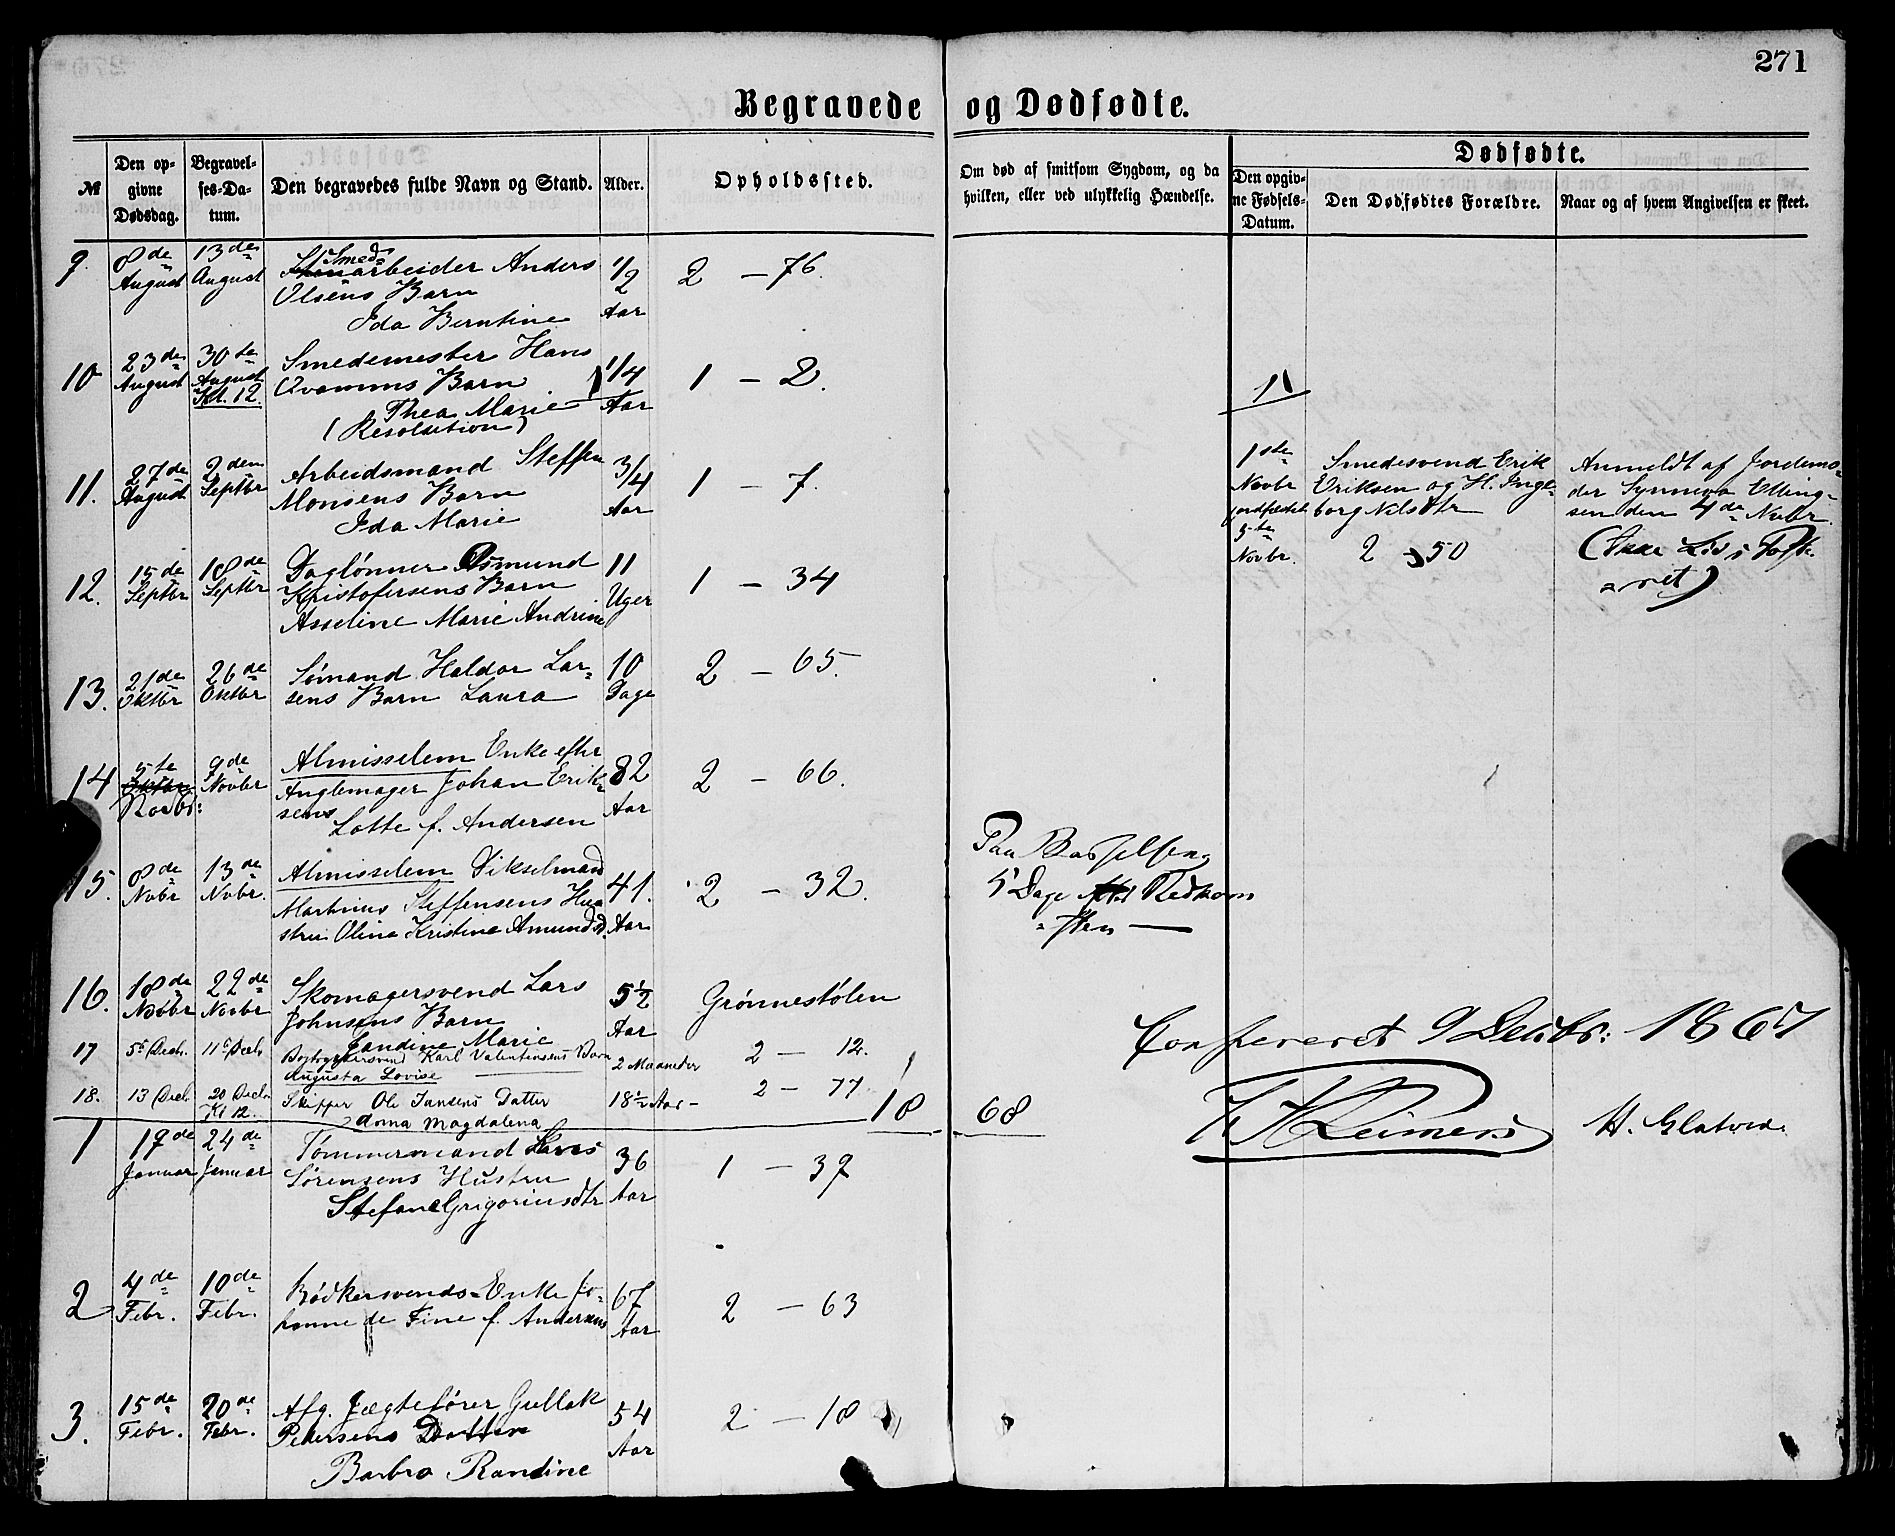 271
Begravede og Dødfødte.
№
Den op-
givne
Dødsdag.
Begravel-
ses-Da-
tum.
Den begravedes fulde Navn og Stand.
Alder.
Opholdssted.
Om død af smitsom Sygdom, og da
hvilken, eller ved ulykkelig Hændelse.
Dødfødte.
Den opgiv-
ne Fødsels-
Datum.
Den Dødfødtes Forældre.
Naar og af hvem Angivelsen er skeet.
9. 8de August 13de August
Smed-
arbeider Anders
Olsens Barn
Ida Berntine
1/2 Aar
2 – 76.
10 23de August 30te August Kl. 12.
Smedemester Hans
Qvamms Barn
Thea Marie
(Resolution)
1/4 Aar
1 – 2.
11. 27de August 2den Septbr
Arbeidsmand Steffen
Monsens Barn
Ida Marie
3/4 Aar
1 – 7.
1
1ste Novbr
jordfæstet
5te Novbr.
Smedesvend Erik
Eriksen og H. Inge-
borg Nelsdtr
2 – 50
Anmeldt af Jordemo-
der Synneva Elling-
sen den 4de Novbr.
12. 15de Septbr 18de Septbr
Daglønner Asmund
Kristofersens Barn
Asseline Marie Andrine
11 Uger
1 – 34
13. 21de Oktbr 26de Oktbr
Sømand Haldor Lar-
sens Barn Laura
10 Dage
2 – 65.
14 5te Oktbr Novbr: 9de Novbr
Almisselem Enke efter
Anglemager Johan Erik-
sens
Lotte f. Andersen
82 Aar
2 – 66.
15. 8de Nvbr 13de Nvbr.
Almisselem
Martinus Steffensens Hu-
stru Olina Kristine Amundsd.
41. Aar
2 – 32.
Paa Barselseng
5 Dage
16. 18de Novbr 22de Novbr
Skomagersvend Lars
Johnsens Barn
Jandine Marie
5 1/2 Aar
Grønnestølen
17 5te Decb. 11te Decb
Bogtrykkersvend Karl Valentinsens Barn
Augusta Lovise
2 Maaneder
2 – 12.
18. 13 Decb. 20 Decb Kl 12.
Skipper Ole Jansens Datter
Anna Magdalena
18 1/2 Aar –
2 – 77
18
68
Confereret 9 Decbr: 1867
H. Glatved.
1 17de Januar 24de Januar
Tømmermand Lars
Sørensens Hustru
Stefane Grigoriusdtr
36 Aar
1 – 39
2 4de Febr. 10de Febr.
Bødkersvends-Enke Jo-
hanne de Fine f. Andersen
67 Aar
2 – 63
3. 15de Febr. 20de Febr.
Afg. Jægtefører Gullak
Petersens Datter
Barbro Randine
54 Aar
2 – 18